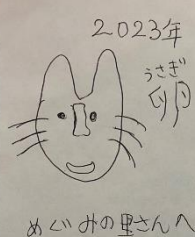 2023年
うさぎ
卵
めぐみの里さんへ